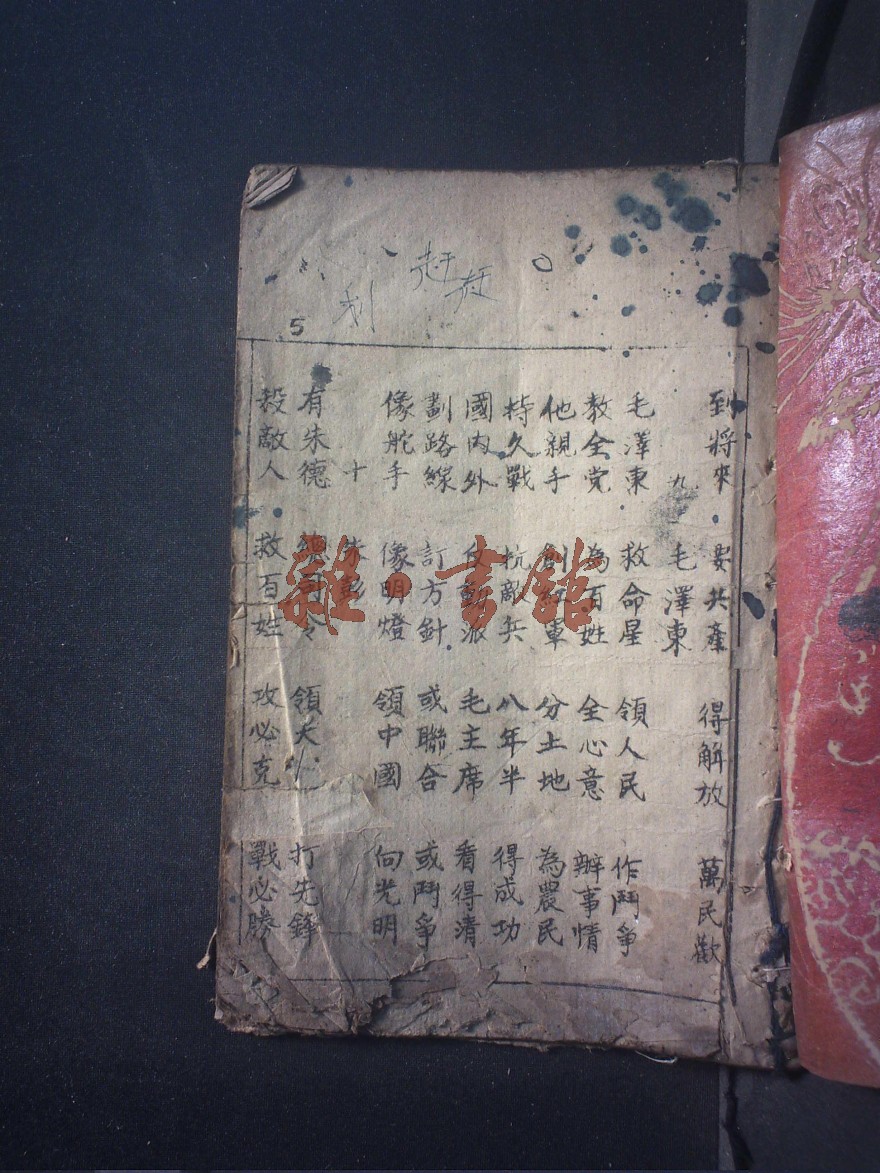 到將來 要共產 得解放 萬民歡
九 毛澤東
毛澤東 救命星 領人民 作鬥爭
教全党 為百姓 全心意 辦事情
他親手 創紅軍 分土地 為農民
持久戰 抗敵兵 八年半 得成功
國內外 反動派 毛主席 看得清
劃路線 訂方針 或聯合 或鬥爭
像舵手 像明燈 領中國 向光明
十 朱彭
有朱德 總司令 領大 打先鋒
殺敵人 救百姓 攻必克 戰必勝
5
雜·書館